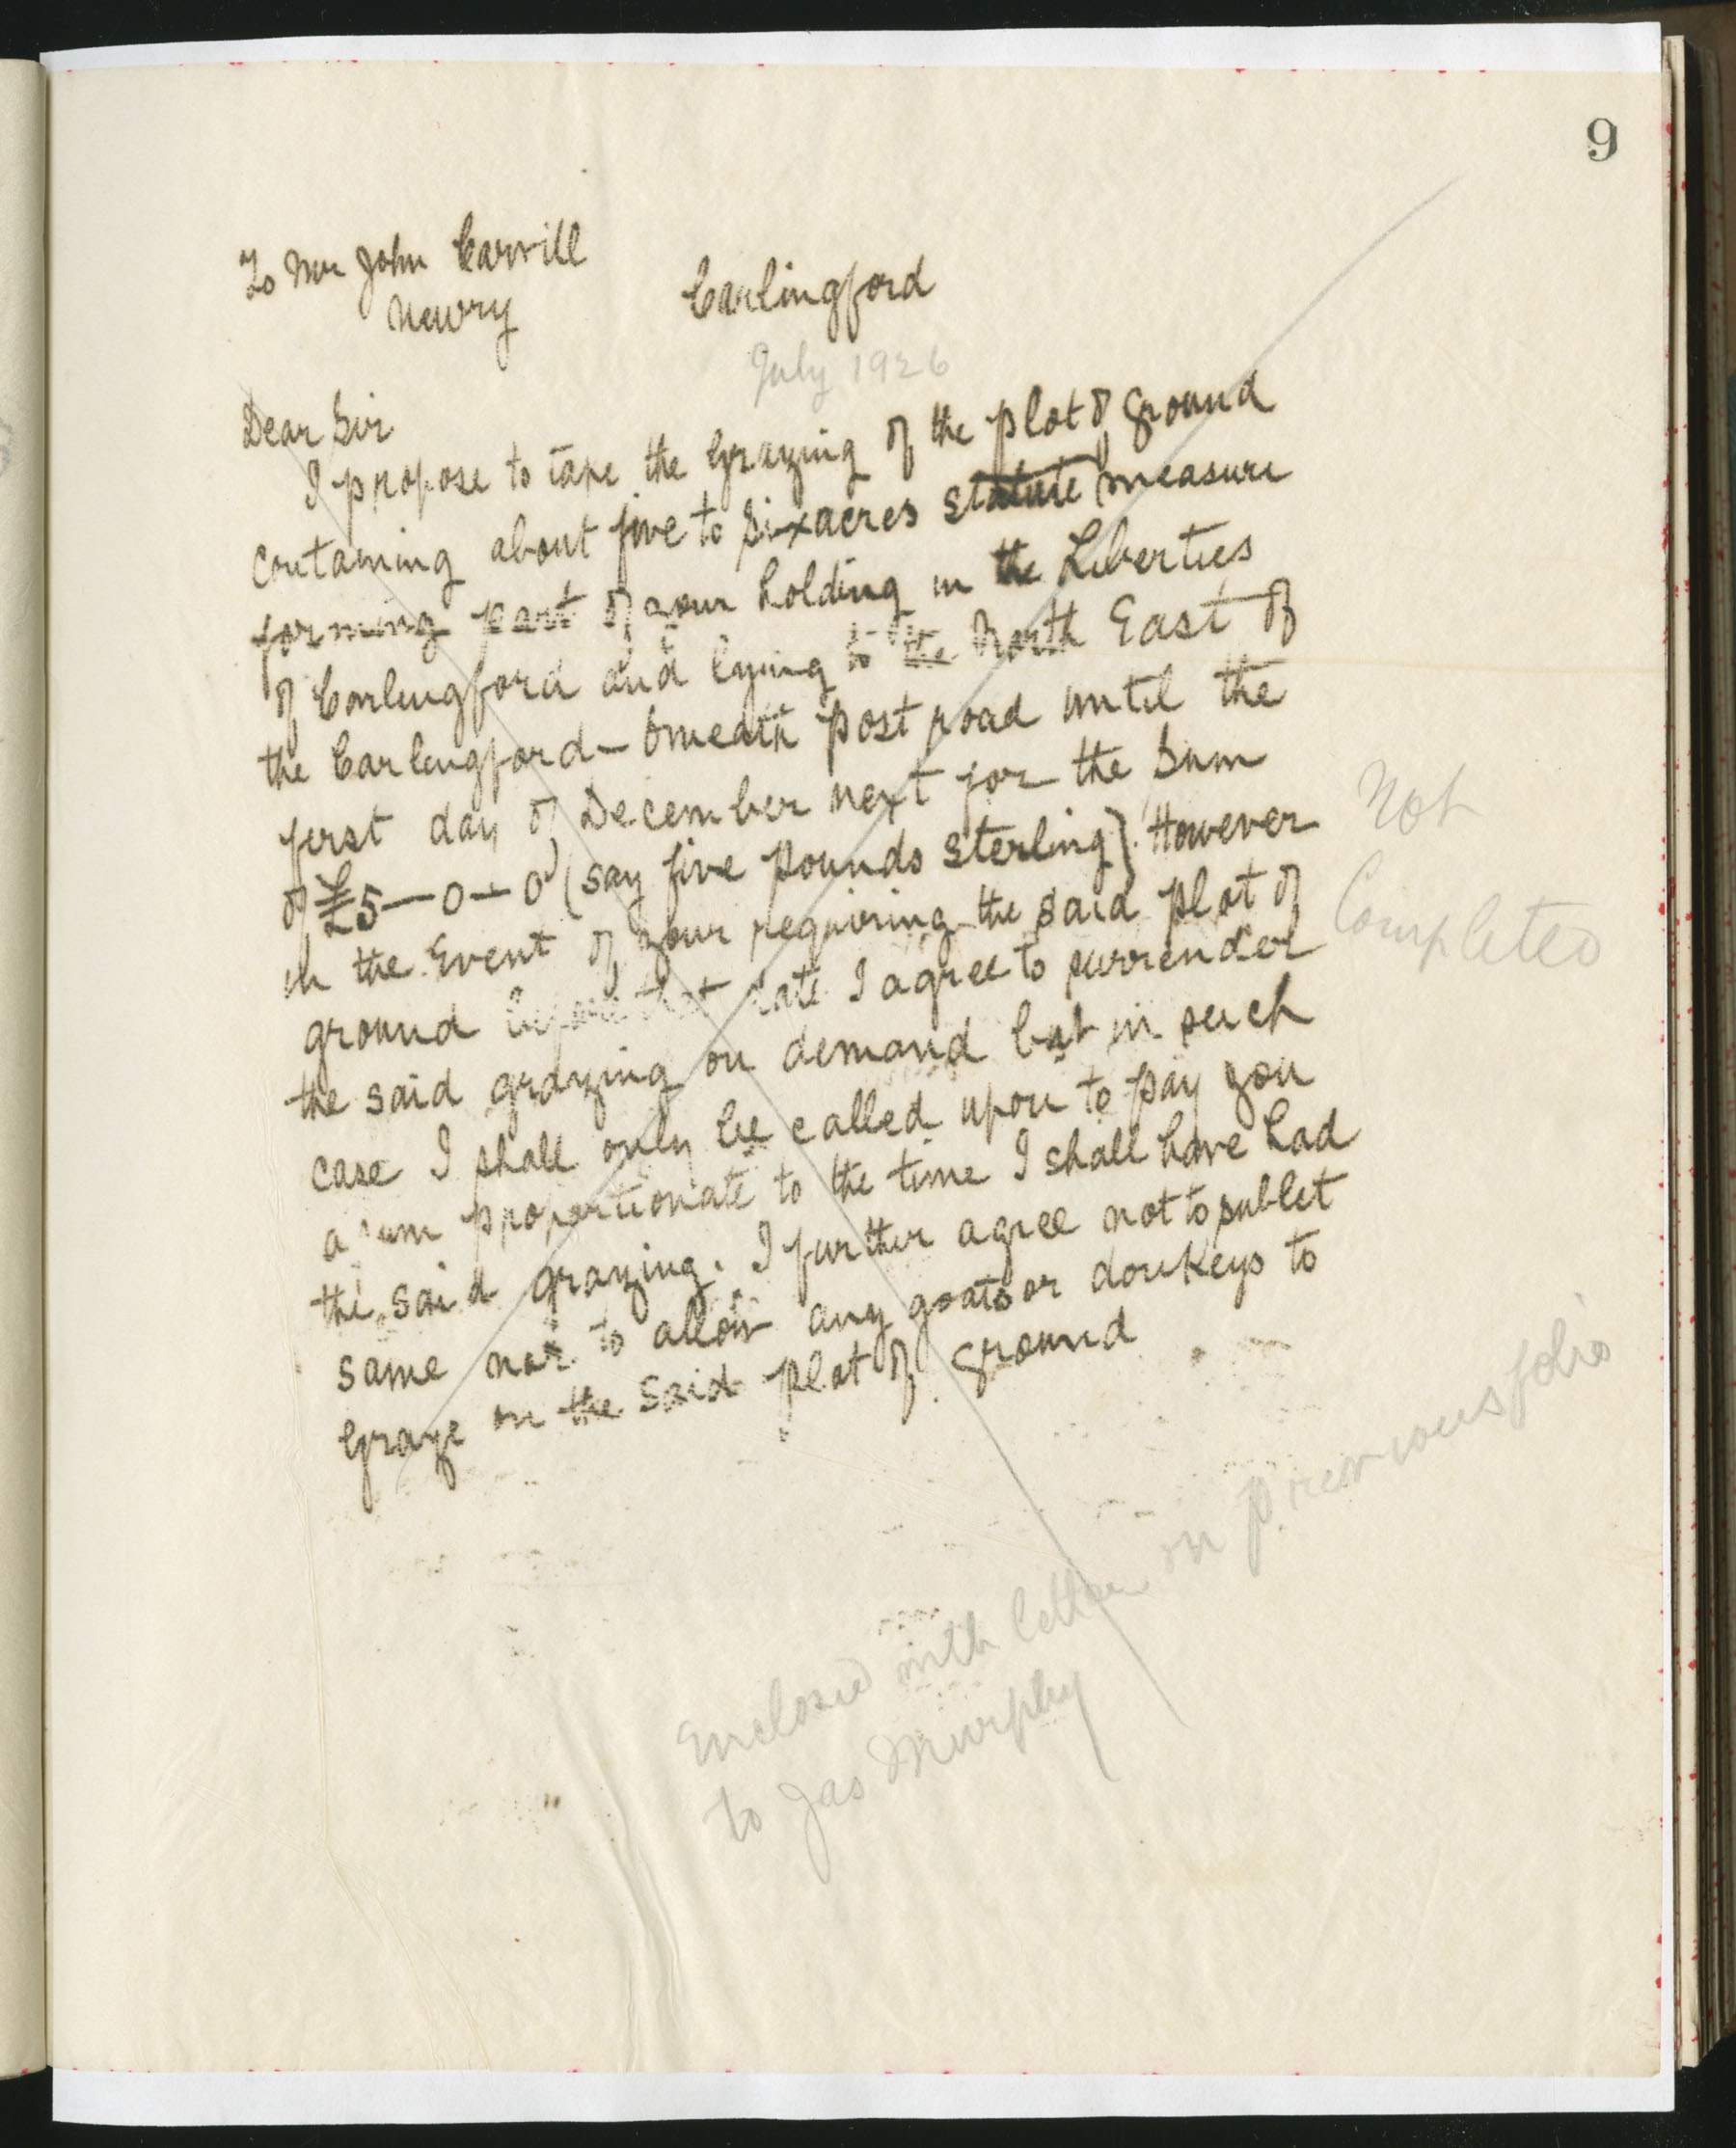 9
To Mr John Carvill
Newry
Carlingford
July 1926
Dear Sir
I propose to take the Grazing of the plot of ground
containing about five to six acres statute measure
forming part of your holding in the Liberties
of Carlingford and lying to the North East of
the Carlingford - Omeath post road until the
first day of December next for the Sum
of £5-0-0 (say five Pounds Sterling). However
in the Event of your requiring the said plot of
ground before that date I agree to surrender
the said grazing on demand but in such
case I shall only be called upon to pay you
a sum proportionate to the time I shall have had
the said grazing. I further agree not to sublet
same nor to allow any goats or donkeys to
Graze on the said plot of ground
Not
Completed
Enclosed with letter on previous folio
to Jas Murphy